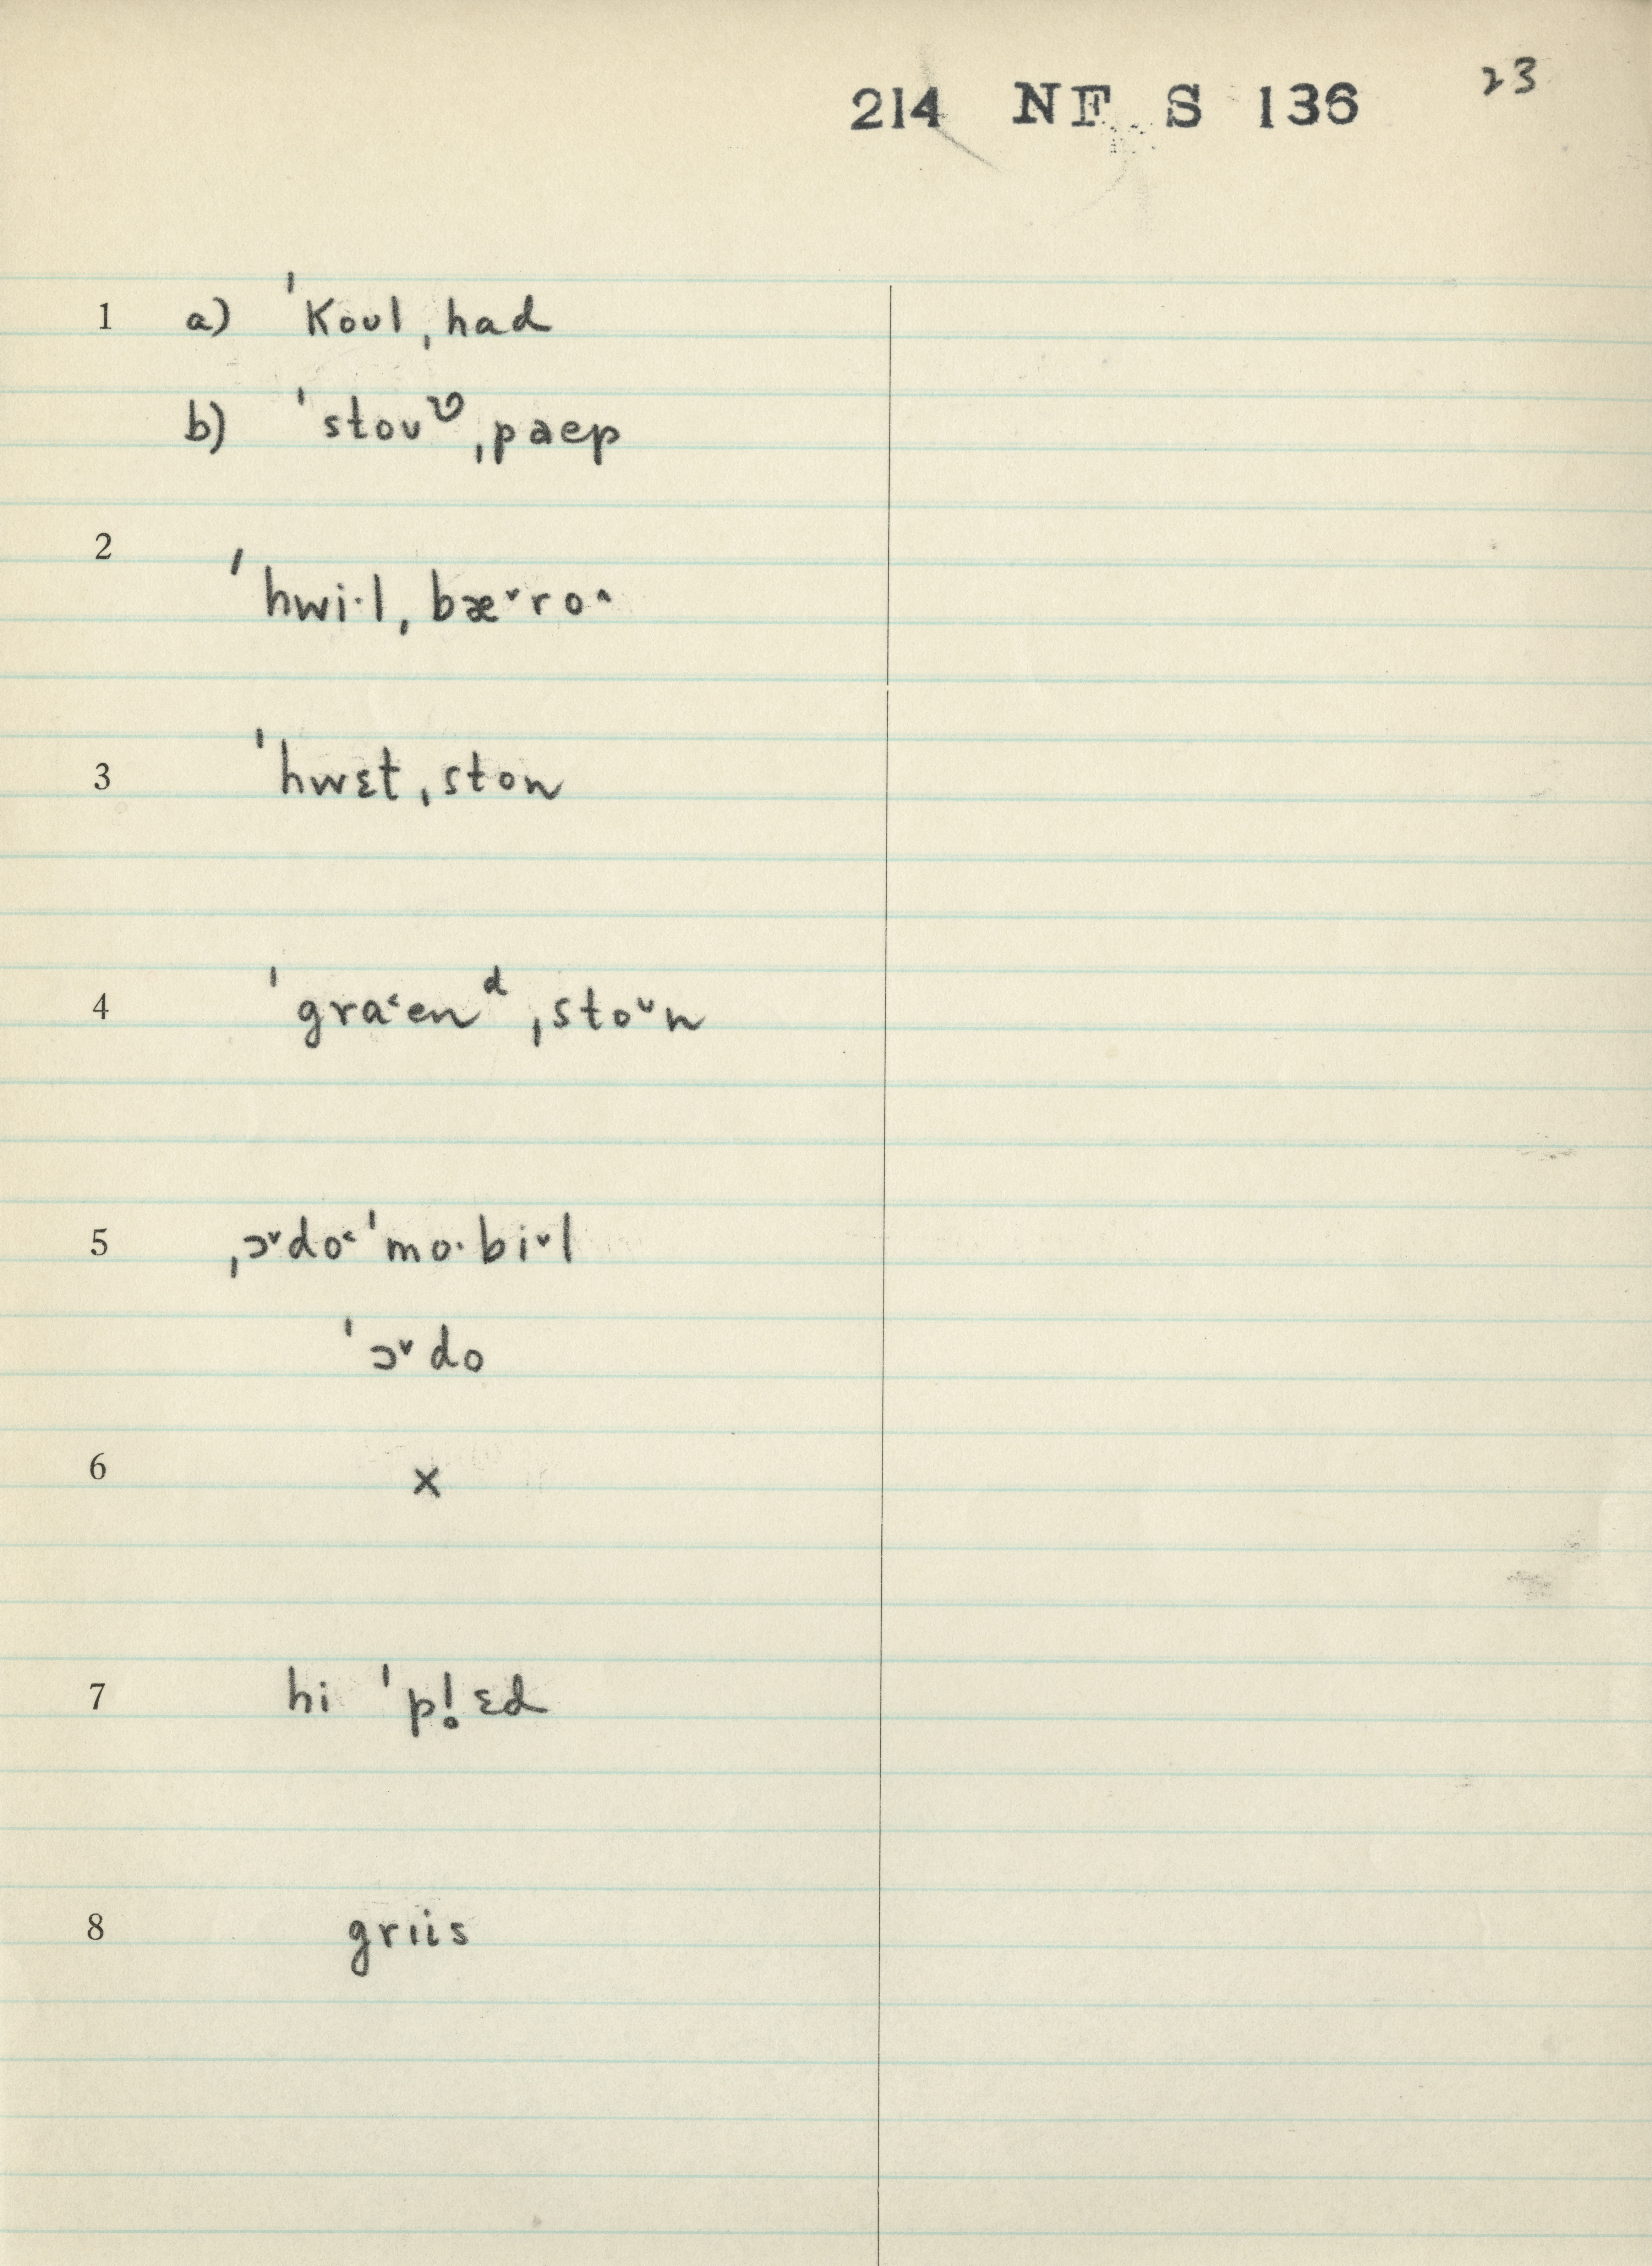 214 NF S 136 23
1 a) ˈkoʊl ˌhad
b) ˈstoʊᶹ ˌpaep
2 ˈhwi·l ˌbæ˅ro˄
3 ˈhwɛt ˌston
4 ˈgra˂enᵈ ˌsto˅n
5 ˌɔ˅do˂ˈmo·bi˅l
ˈɔ˅do
6 x
7 hi ˈpl̥!ɛd
8 grɪis